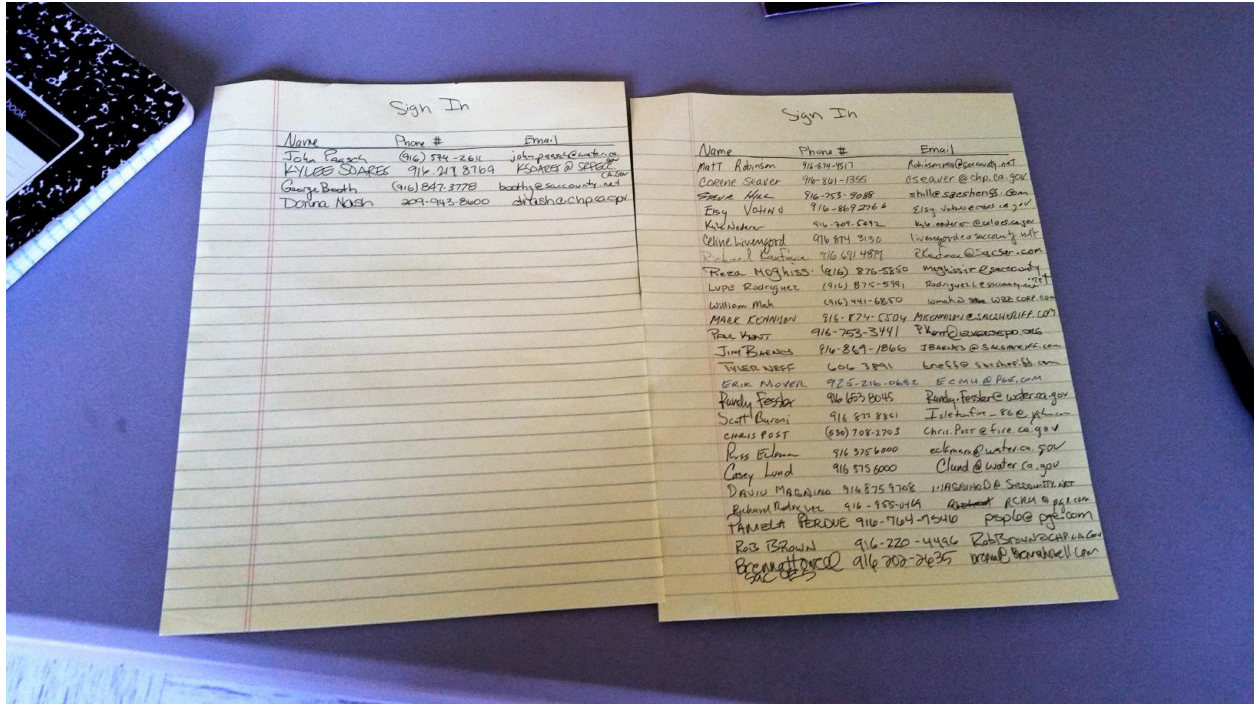 book
Sign In
Name Phone # Email
John Paasch (916) 574-2611 john.paasch@water.ca
.gov
KYLEE SOARES 916.217 8769 KSOARES @
CA.GOV
George Booth (916) 847-3778 boothg@saccounty.net
Donna Nash 209-943-8600 dnash@chp.ca.gov
Sign In
Name Phone # Email
Matt Robinson 916-874-4517
Corene Seaver 916-861-1355 cseaver@chp.ca.gov
Steve Hill 916-753-9088 shill@sacsheriff.com
Elsy 916-869 2766
Kyle Nederer 916-709-5692
Celine Livengood 916 874 3130 livengoodc@saccounty.net
Richard Kaufman 916 691 4879
Reza Moghiss. (916) 876-5850
Lupe Rodriguez (916) 875-5991
.net
William Mah (916) 441-6850 CORP.COM
MARK KENNISON 916-874-5504 MKENNISON@SACSHERIFF.COM
916-753-3441
JIM BARNES 916-869-1866 JBARNES@SACSHERIFF.COM
TYLER NEFF 606 3891 tneff@sacsheriff.com
ERIK MOVER 925-216-0682 ECMH@PGE.COM
Randy Fessler 916 653 8045 Randy.Fessler@water.ca.gov
Scott Baroni
CHRIS POST (530) 708-2703 Chris.Post@fire.ca.gov
Russ Eckman 916 375 6000 eckman@water.ca.gov
Casey Lund 916 375 6000 Clund@water.ca.gov
DAVID MAGNINO 916 875 9708 MAGNINOD@SACCOUNTY.NET
Richard Rodriguez 916-955-0169 RCRM@pge.com
PAMELA PERDUE 916-764-7546 psp6@pge.com
ROB BROWN 916-220-4496 RobBrown@CHP.CA.Gov
Brenna Howell 916 202-2635 brenna@brennahowell.com
SAC OES